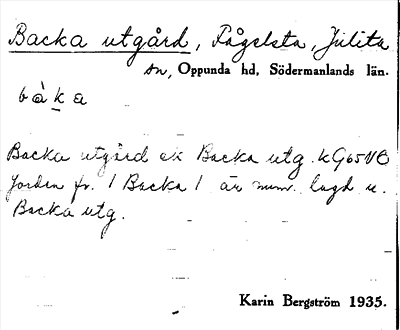 Backa utgård, Fågelsta, Julita
sn, Oppunda hd, Södermanlands län.
bàka
Backa utgård ek Backa utg. kG65NO
Jorden fr. 1 Backa 1 är num. lagd u.
Backa utg.
Karin Bergström 1935.